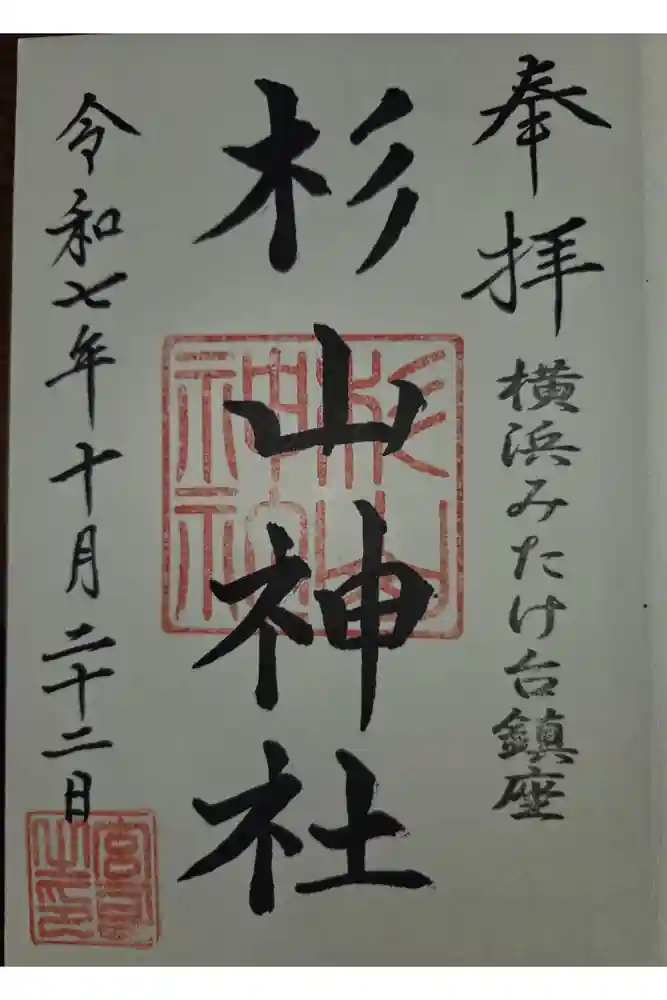 奉拝 横浜みたけ台鎮座
杉山神社
令和七年十月二十二日
杉山
神社
宮司
之印